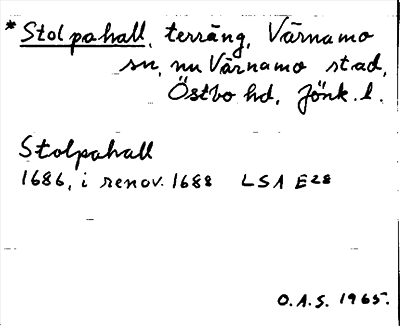 * Stolpahall, terräng, Värnamo
sn, nu Värnamo stad,
Östbo hd, Jönk. l.
Stolpahall
1686, i renov. 1688 LSA E28
O.A.S. 1965.